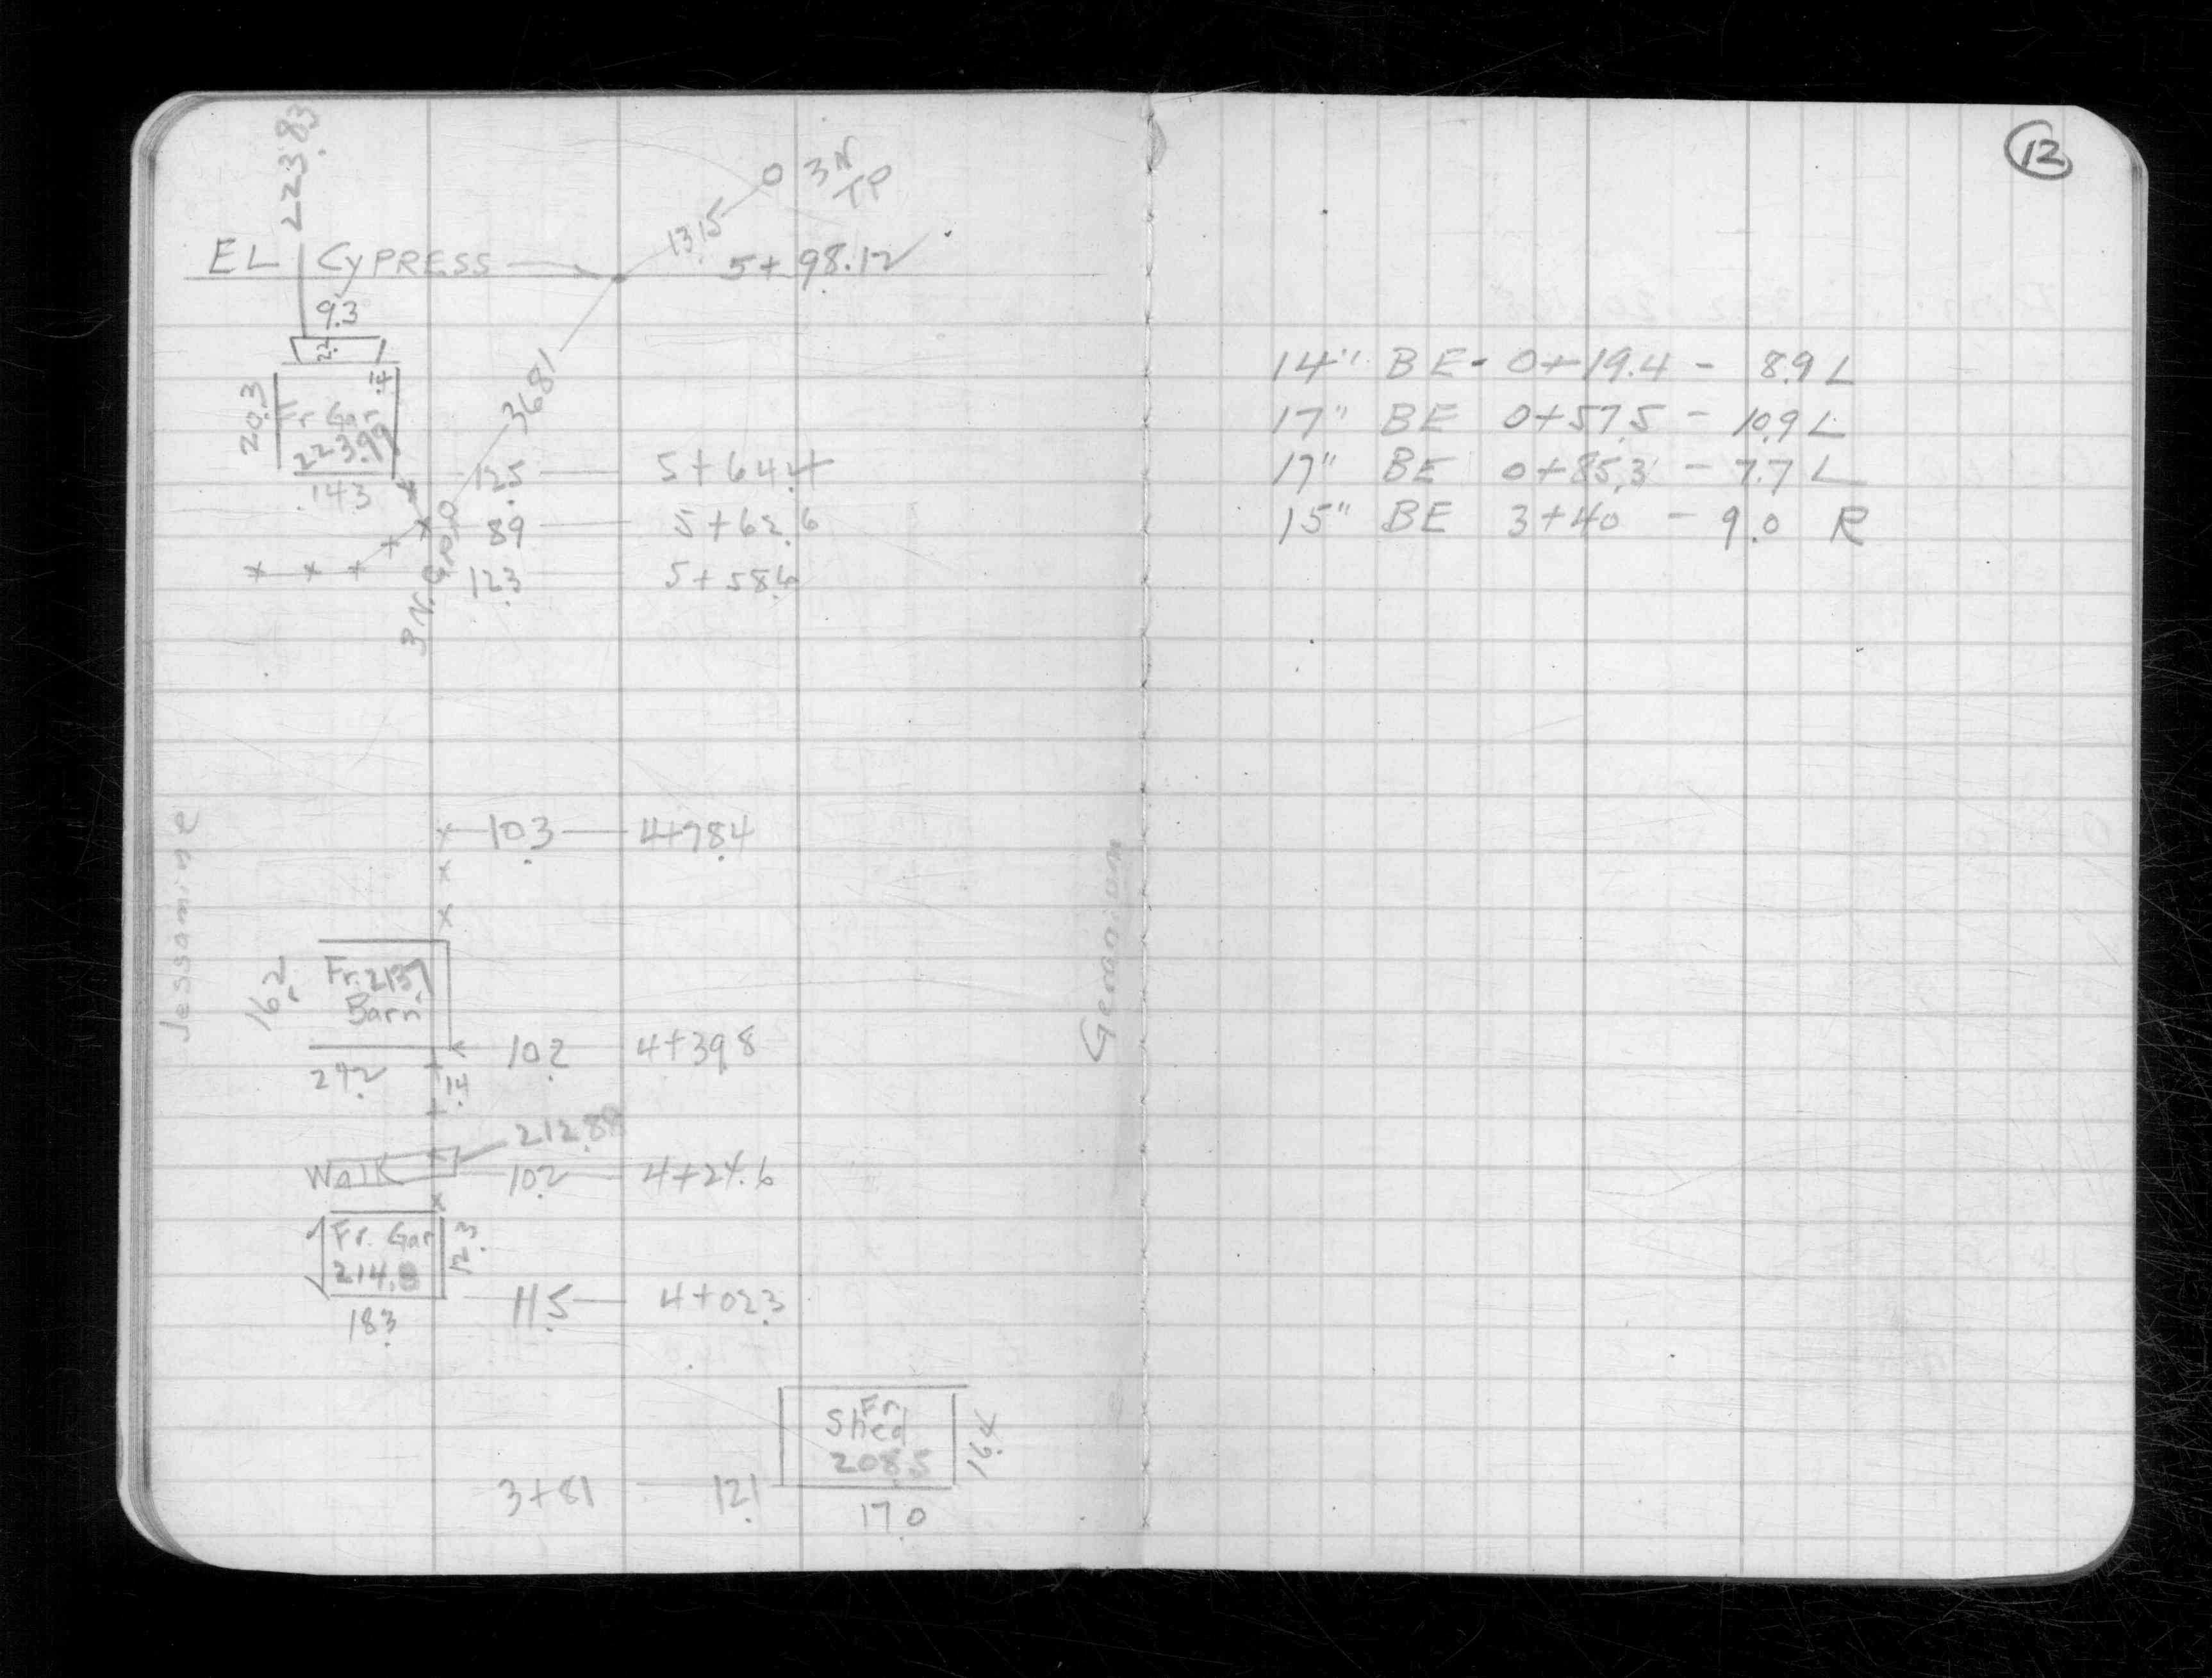 223.83
3N
TP
13.15
EL CYPRESS
5+98.12
9.3
2.2
.14
20.3
Fr Gar
223.99
36.81
14.3
12.5 5+64.4
8.9 5+62.6
12.3 5+58.6
10.3 4+78.4
Jessamine
Geranium
16.2
Fr. 213.7
Barn
10.2 4+39.8
24.2
.14
212.88
Walk 10.2 4+24.6
Fr. Gar
214.8
12.3
11.5 4+02.3
18.3
Fr
Shed
208.5
16.4
3+81 12.1
17.0
12
14" BE - 0+19.4 - 8.9 L
17" BE 0+57.5 - 10.9 L
17" BE 0+85.3 - 7.7 L
15" BE 3+40 - 9.0 R